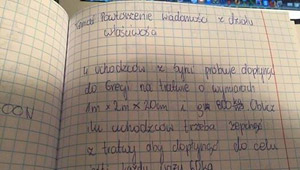 Temat: Powtórzenie wiadomości z działu
właściwości
4 uchodźców z Syrii próbuje dopłynąć
do Grecji na tratwie o wymiarach
1m × 2m × 20cm i
Oblicz
ilu uchodźców trzeba zepchnąć
z tratwy aby dopłynąć do celu